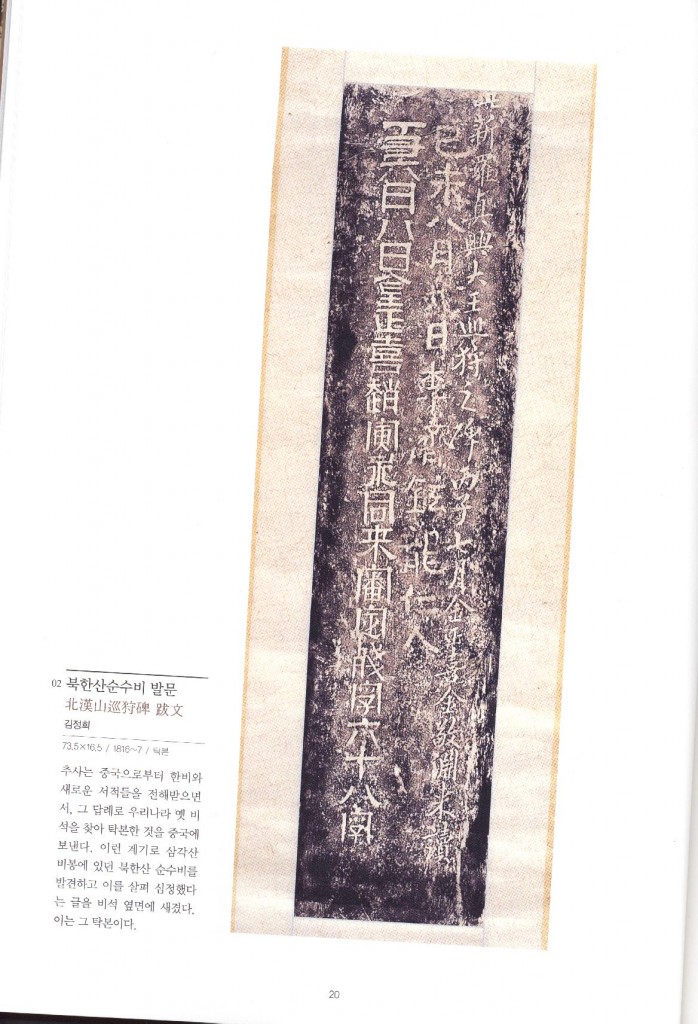 此新羅真興大王巡狩之碑丙子七月金正喜金敬淵来讀
己未八月廿日李濟鉉龍仁人
丁丑六月八日金正喜趙寅永同来審定殘字六十八字
02 북한산순수비 발문
北漢山巡狩碑 跋文
김정희
73.5×16.5 / 1816~7 / 탁본
추사는 중국으로부터 한비와
새로운 서적들을 전해받으면
서, 그 답례로 우리나라 옛 비
석을 찾아 탁본한 것을 중국에
보낸다. 이런 계기로 삼각산
비봉에 있던 북한산 순수비를
발견하고 이를 살펴 심정했다
는 글을 비석 옆면에 새겼다.
이는 그 탁본이다.
20